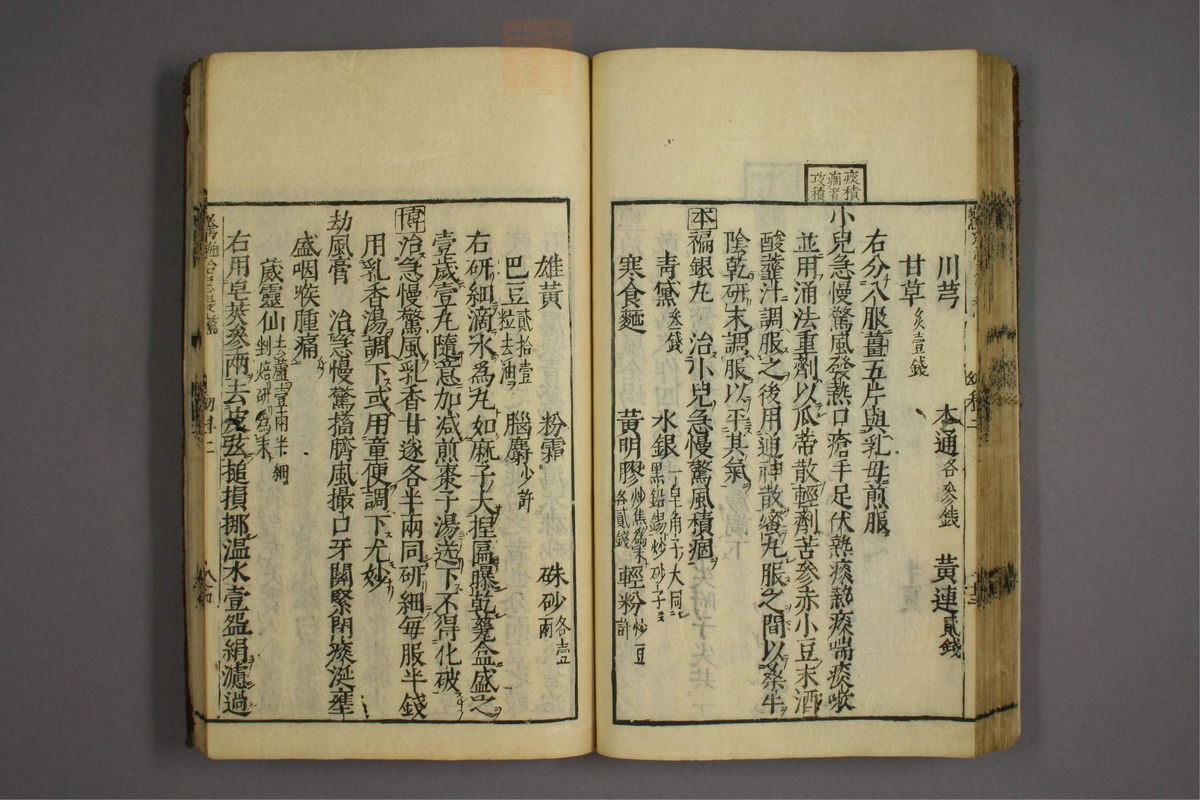 痰積
癇者
攻積
川芎　木通各參錢　黃連貳錢
甘草炙壹錢
右分八服薑五片與乳母煎服
小兒急慢驚風發熱口瘡手足伏熱痰熱痰喘痰嗽
並用涌法重劑以瓜蒂散輕劑苦參赤小豆末酒
酸虀汁調服之後用通神散蜜丸服之間以桑牛
陰乾研末調服以平其氣
本褊銀丸　治小兒急慢驚風積痼
青黛參錢　水銀一皂角子大同黑鉛錫炒砂子
寒食麵　黃明膠炒焦為末各貳錢　輕粉炒一豆許
雄黃　粉霜　硃砂各壹兩
巴豆貳拾壹粒去油　腦麝少許
右研細滴水為丸如麻子大捏匾曝乾甆盒盛之
壹歲壹丸隨意加減煎棗子湯送下不得化破
博治急慢驚風乳香甘遂各半兩同研細每服半錢
用乳香湯調下或用童便調下尤妙
劫風膏　治急慢驚搐臍風撮口牙關緊閉痰涎壅
盛咽喉腫痛
葳靈仙去蘆壹兩半細剉焙研為末
右用皂莢參兩去皮弦搥損挪溫水壹盌絹濾過